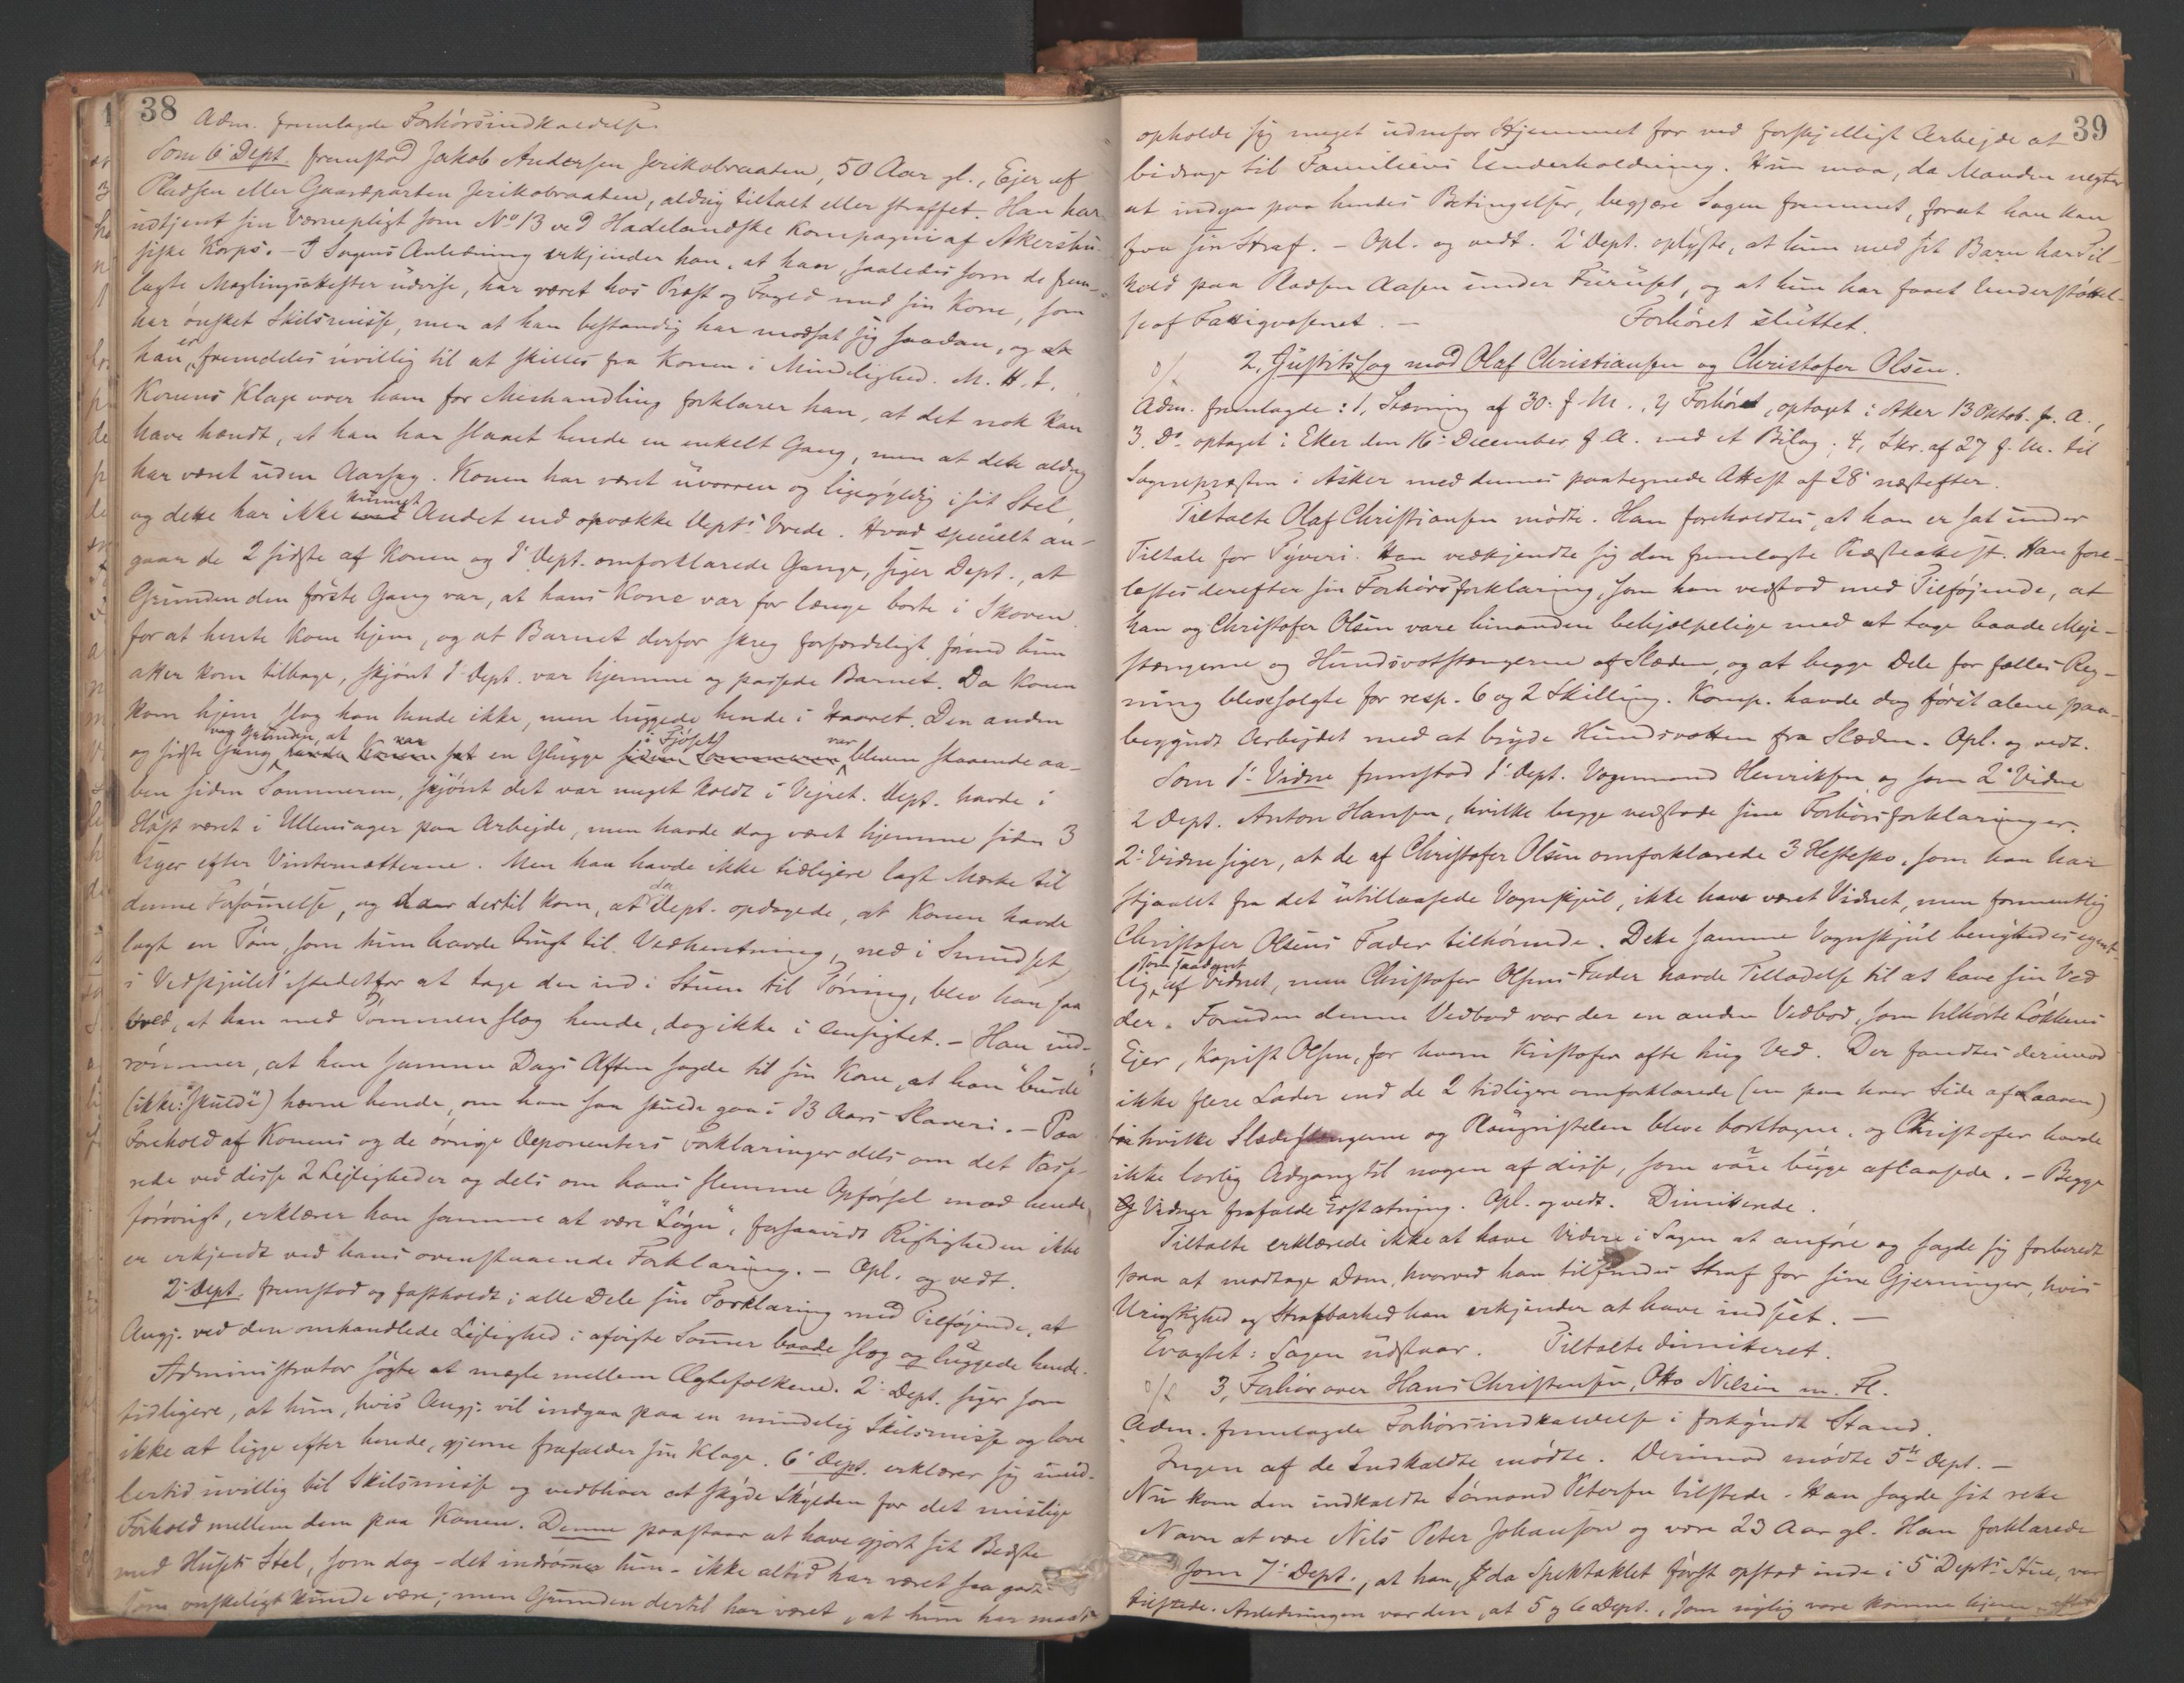 38
Adm. fremlagde Forhörsindkaldelse.
Som 6' Dept. fremstod Jakob Andersen Jerikobraaten, 50 Aar gl., Ejer af
Pladsen eller Gaardparten Jerikobraaten, aldrig tiltalt eller straffet. Han har
udtjent sin Værnepligt som No 13 ved Hadelandske Kompagni af Akershu-
siske Korps. - I Sagens Anledning erkjender han, at han, saaledes som de frem-
lagte Mæglingsattester udvise, har været hos Præst og Foged med sin Kone, som
har önsket Skilsmisse, men at han bestandig har modsat sig saadan, og at
han er fremdeles uvillig til at skilles fra Konen i Mindelighed. M. H. t.
Konens Klage over ham for Mishandling forklarer han, at det nok kan
have hændt, at han har slaaet hende en enkelt Gang, men at dette aldrig
har været uden Aarsag. Konen har været uvorren og ligegyldig i sit Stel,
og dette har ikke kunnet Andet end opvække Dept.s Vrede. Hvad specielt an-
gaar de 2 sidste af Konen og 1' Dept. omforklarede Gange, siger Dept., at
Grunden den förste Gang var, at hans Kone var for længe borte i Skoven
for at hente Kom hjem, og at Barnet derfor skreg forfærdeligt, förend hun
atter kom tilbage, skjönt 1' Dept. var hjemme og passede Barnet. Da Konen
kom hjem slog han hende ikke, men luggede hende i Haaret. Den anden
og sidste Gang var Grunden, at en Glugge i Fjöset var bleven staaende aa-
ben siden Sommeren, skjönt det var meget koldt i Vejret. Dept. havde i
Höst været i Ullensager paa Arbejde, men havde dog været hjemme siden 3
Uger efter Vinternætterne. Men han havde ikke tidligere lagt Mærke til
denne Forsömmelse, og dertil kom, at da Dept. opdagede, at Konen havde
lagt en Töm, som hun havde brugt til Vedhentning, ned i
i Vedskjulet istedetfor at tage den ind i Stuen til Törring, blev han saa
vred, at han med Tömmen slog hende, dog ikke i Ansigtet. - Han ind-
römmer, at han samme Dags Aften sagde til sin Kone, at han "burde"
(ikke: "skulde") hævne hende, om han saa skulde gaa i 13 Aars Slaveri. - Paa
Forehold af Konens og de övrige Deponenters Forklaringer dels om det Passe-
rede ved disse 2 Lejligheder og dels om hans slemme Opförsel mod hende
forövrigt, erklærer han samme at være "Lögn", forsaavidt Rigtigheden ikke
er erkjendt ved hans ovenstaaende Forklaring. - Opl. og vedt.
2' Dept. fremstod og fastholdt i alle Dele sin Forklaring med Tilföjende, at
Angj. ved den omhandlede Lejlighed i afvigte Sommer baade slog og luggede hende.
Administrator sögte at mægle mellem Ægtefolkene. 2' Dept. siger som
tidligere, at hun, hvis Angj. vil indgaa paa en mindelig Skilsmisse og love
ikke at ligge efter hende, gjerne frafalder sin Klage. 6' Dept. erklærer sig imid-
lertid uvillig til Skilsmisse og vedbliver at skyde Skylden for det mislige
Forhold mellem dem paa Konen. Denne paastaar at have gjort sit Bedste
med Husets Stel, som dog - det indrömmer hun - ikke altid har været saa godt
som önskeligt kunde være; men Grunden dertil har været, at hun har maatte
39
opholde sig meget udenfor Hjemmet for ved forskjelligt Arbejde at
bidrage til Familiens Underholdning. Hun maa, da Manden negter
at indgaa paa hendes Betingelser, begjære Sagen fremmet, forat han kan
faa sin Straf. - Opl. og vedt. 2' Dept. oplyste, at hun med sit Barn har Til-
hold paa Pladsen Aasen under Furuset, og at hun har faaet Understöttel-
se af Fattigvæsenet. - Forhöret sluttet.
2, Justitssag mod Olaf Christiansen og Christofer Olsen.
Adm. fremlagde: 1, Stævning af 30' f. M., 2, Forhöret, optaget i Aker 13 Oktob. f. A.,
3. Do. optaget i Eker den 16' December f. A. med et Bilag; 4, Skr. af 27 f. M. til
Sognepræsten i Asker med dennes paategnede Attest af 28' næstefter.
Tiltalte Olaf Christiansen mödte. Han foreholdtes, at han er sat under
Tiltale for Tyveri. Han vedkjendte sig den fremlagte Præsteattest. Han fore-
læstes derefter sin Forhörsforklaring, som han vedstod med Tilföjende, at
han og Christofer Olsen vare hinanden behjælpelige med at tage baade Meje-
stængerne og Hundsvotstængerne af Slæden, og at begge Dele for fælles Reg-
ning bleve solgte for resp. 6 og 2 Skilling. Komp. havde dog först alene paa-
begyndt Arbejdet med at bryde Hundsvotten fra Slæden. Opl. og vedt.
Som 1' Vidne fremstod 1' Dept. Vognmand Henriksen og som 2' Vidne
2 Dept. Anton Hansen, hvilke begge vedstode sine Forhörsforklaringer.
2' Vidne siger, at de af Christofer Olsen omforklarede 3 Hestesko, som han har
stjaalet fra det utillaasede Vognskjul, ikke have været Vidnet, men formentlig
Christofer Olsens Fader tilhörende. Dette samme Vognskjul benyttedes egent-
lig som saadant af Vidnet, men Christofer Olsens Fader havde Tilladelse til at have sin Ved
der. Foruden denne Vedbod var der en anden Vedbod, som tilhörte Lökkens
Ejer, Kopist Olsen, for hvem Kristofer ofte hug Ved. Der fandtes derimod
ikke flere Lader end de 2 tidligere omforklarede (en paa hver Side af Laaven)
fra hvilke Slædestængerne og Plougristelen bleve borttagne, og Christofer havde
ikke lovlig Adgang til nogen af disse, som vare begge aflaasede. - Begge
Vidner frafalde Erstatning. Opl. og vedt. Dimitterede.
Tiltalte erklærede ikke at have Videre i Sagen at anföre og sagde sig forberedt
paa at modtage Dom, hvorved han tilfindes Straf for sine Gjerninger, hvis
Urigtighed og Strafbarhed han erkjender at have indseet. -
Eragtet: Sagen udstaar. Tiltalte dimitteret.
3, Forhör over Hans Christensen, Otto Nilsen m. Fl.
Adm. fremlagde Forhörsindkaldelse i forkyndt Stand.
Ingen af de Indkaldte mödte. Derimod mödte 5te Dept. -
Nu kom den indkaldte Sömand Petersen tilstede. Han sagde sit rette
Navn at være Nils Peter Johansen og være 23 Aar gl. Han forklarede
Som 7' Dept., at han, da Spektaklet först opstod inde i 5' Dept.s Stue, var
tilstede. Anledningen var den, at 5 og 6 Dept., som nylig vare komne hjem efter